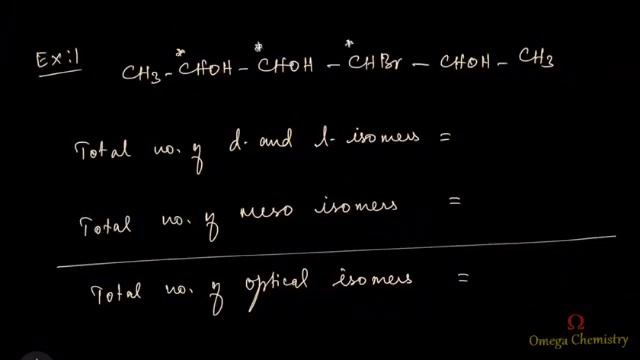 Ex:1
CH3 - *CHOH - *CHOH - *CHBr - CHOH - CH3
Total no. of d- and l- isomers =
Total no. of meso isomers =
Total no. of optical isomers =
Ω
Omega Chemistry